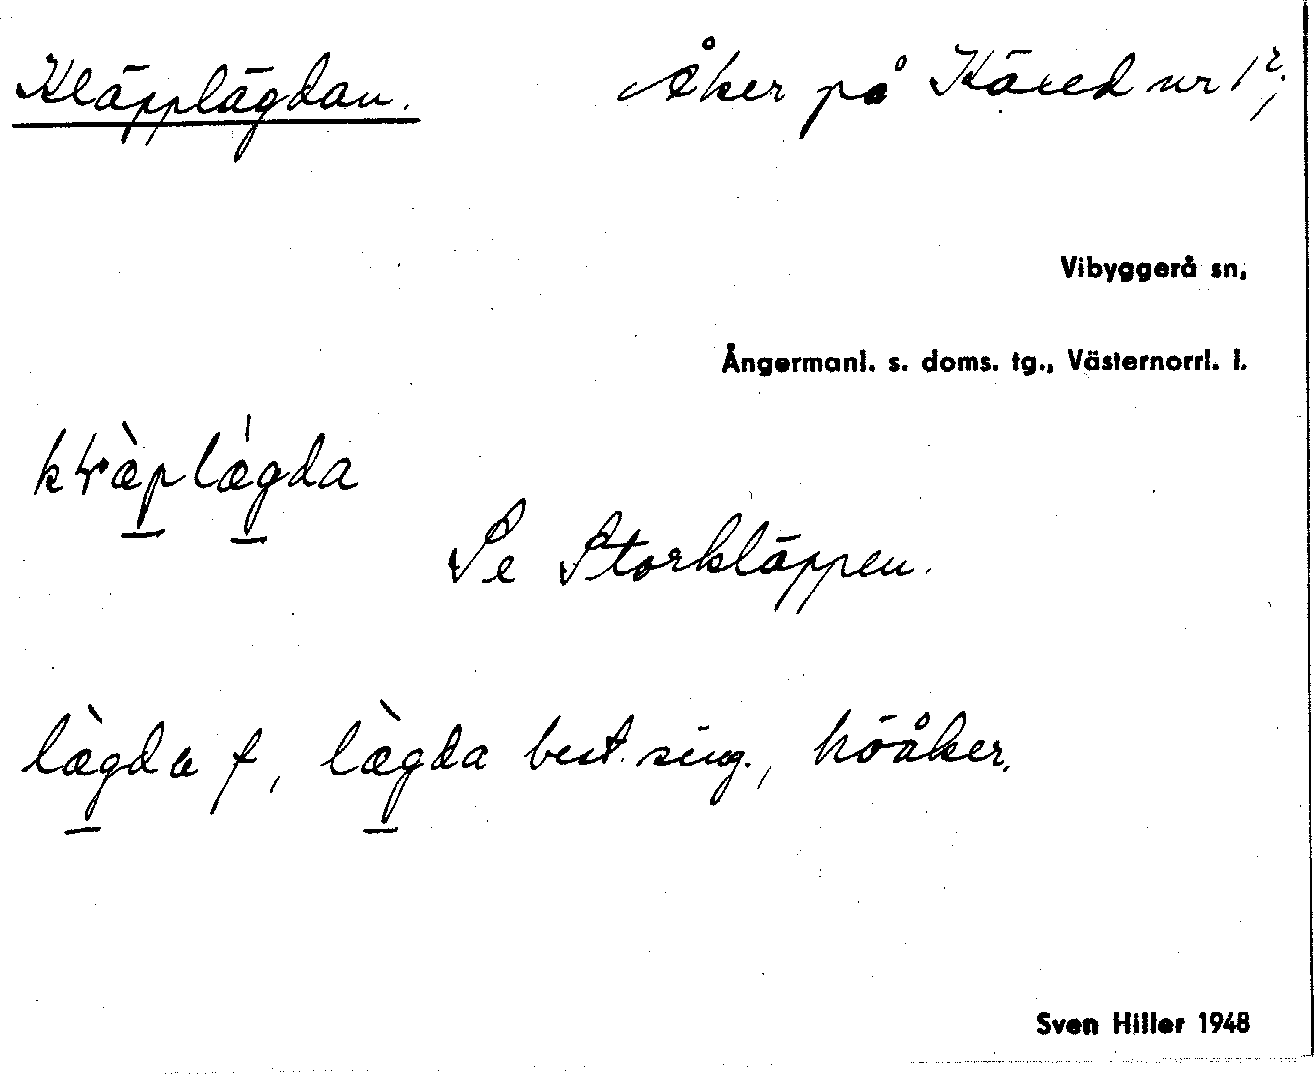 Kläpplägdan. Åker på Käxed nr 1²;
Vibyggerå sn,
Ångermanl. s. doms. tg., Västernorrl. l.
lægda f, lægda best. sing., höåker.
Se Storkläppen.
Sven Hiller 1948